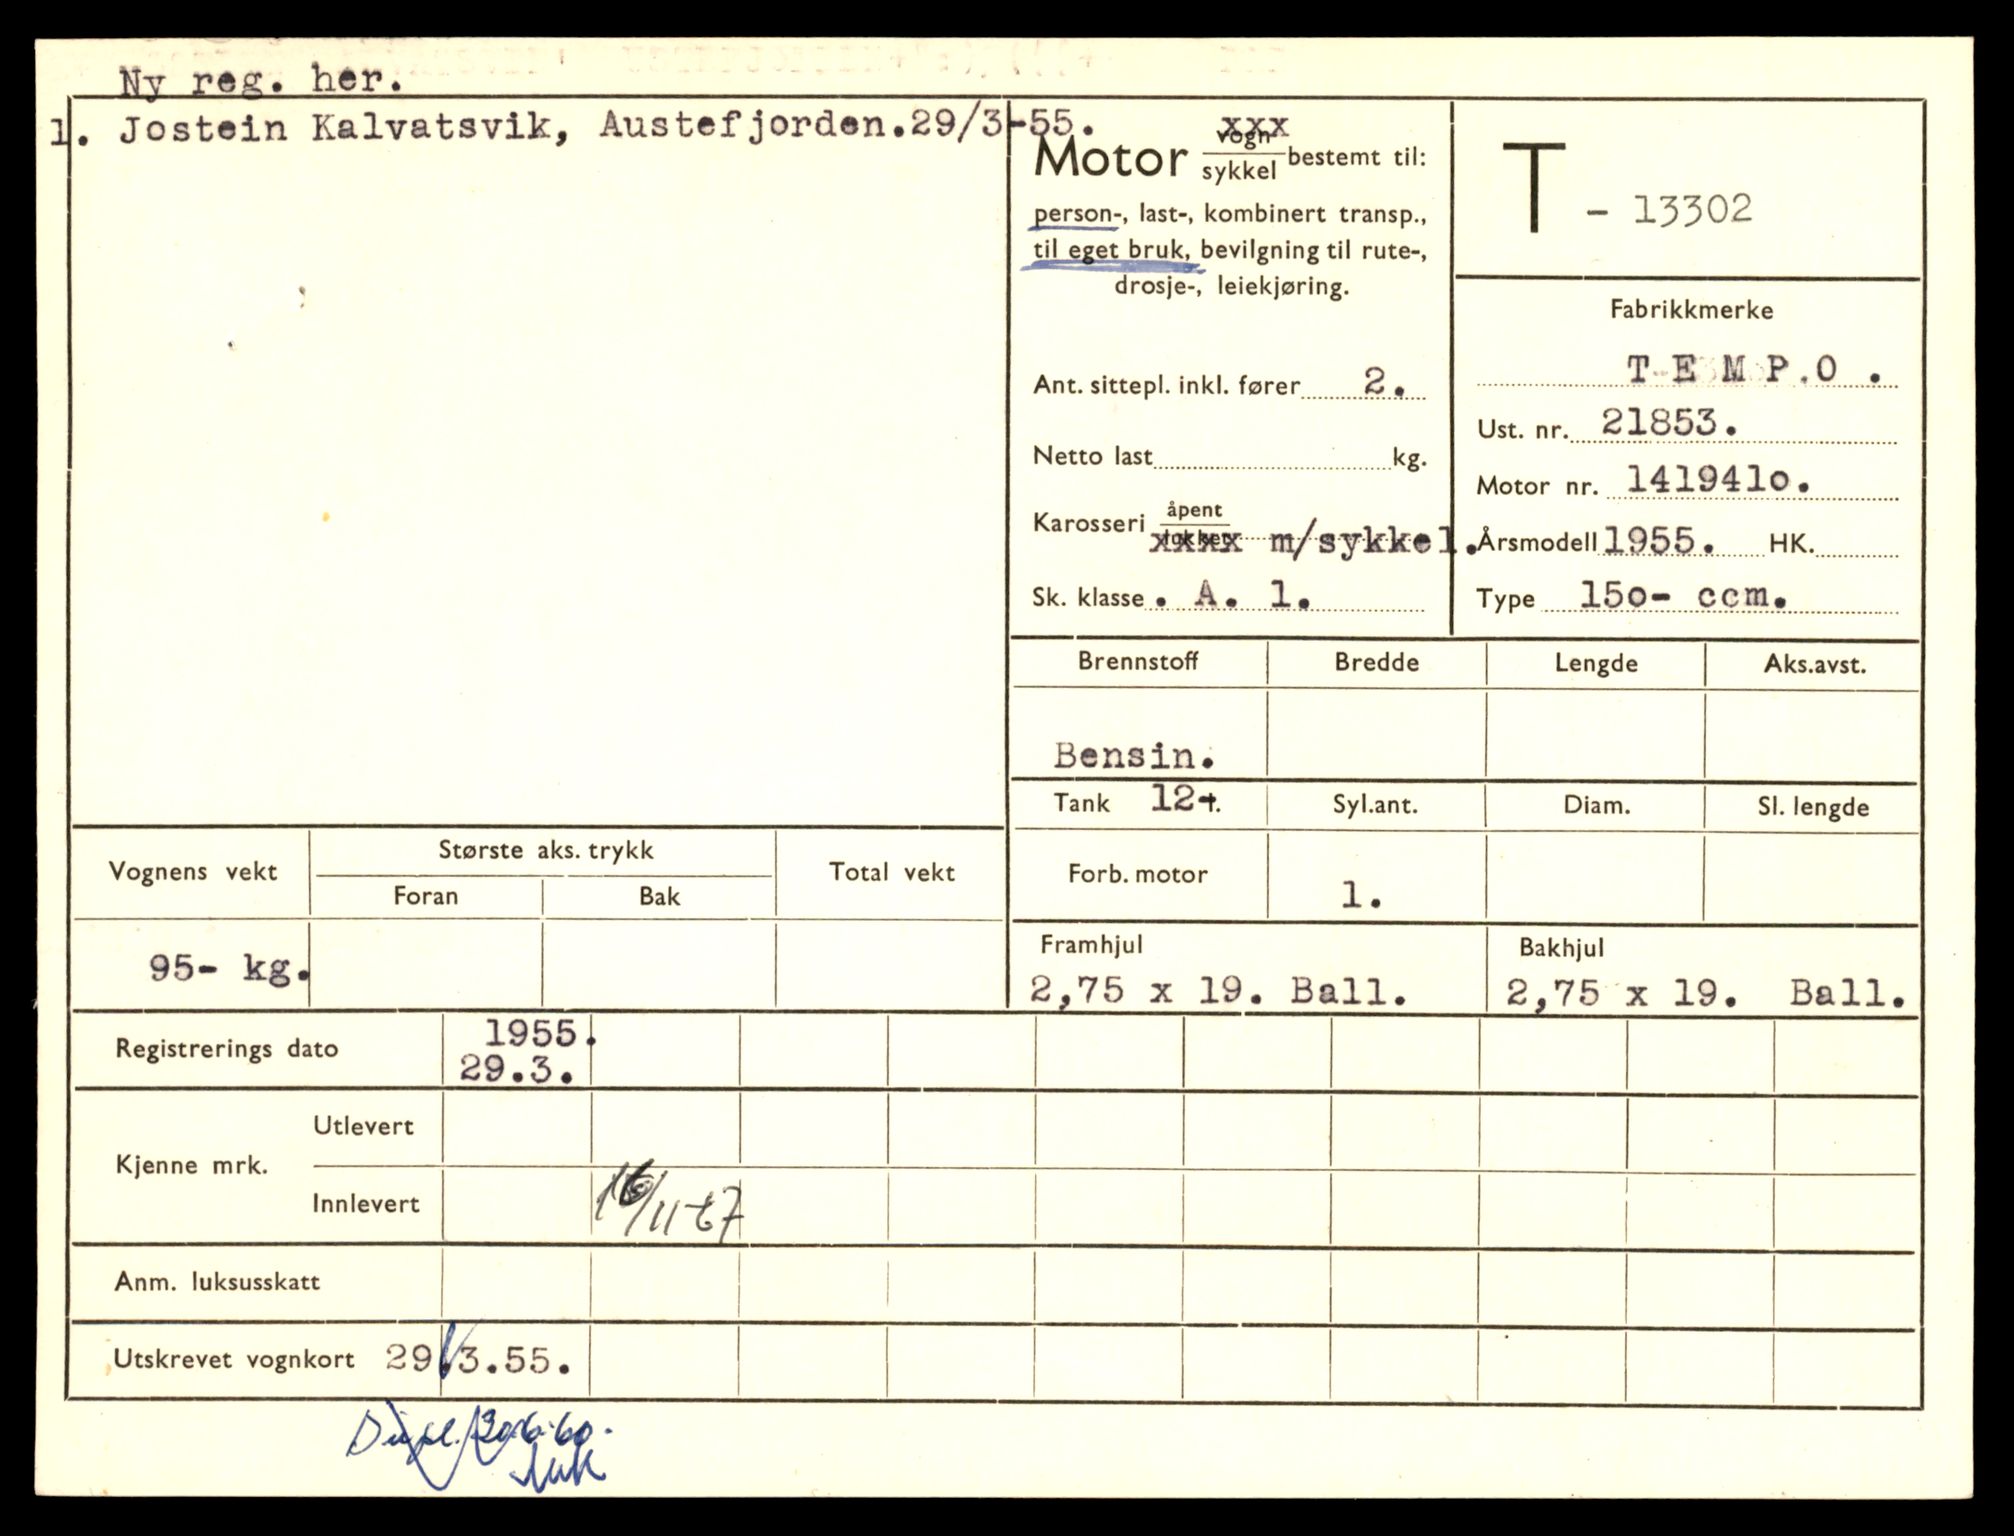 Ny reg. her.
1. Jostein Kalvatsvik, Austefjorden.29/3-55.
Motor vogn/sykkel bestemt til:
xxx
person-, last-, kombinert transp.,
til eget bruk, bevilgning til rute-,
drosje-, leiekjøring.
Ant. sittepl. inkl. fører 2.
Netto last kg.
Karosseri åpent/lukket xxxx m/sykkel.
Sk. klasse . A. 1.
T - 13302
Fabrikkmerke
T E M P.O .
Ust. nr. 21853.
Motor nr. 141941o.
Årsmodell 1955. HK.
Type 15o- ccm.
Brennstoff Bredde Lengde Aks.avst.
Bensin.
Tank 12-l. Syl.ant. Diam. Sl. lengde
Forb. motor 1.
Framhjul Bakhjul
2,75 x 19. Ball. 2,75 x 19. Ball.
Vognens vekt Største aks. trykk Total vekt
Foran Bak
95- kg.
Registrerings dato 1955.
29.3.
Kjenne mrk. Utlevert
Innlevert 16/11-67
Anm. luksusskatt
Utskrevet vognkort 29.3.55.
Dupl. 30.6.60.